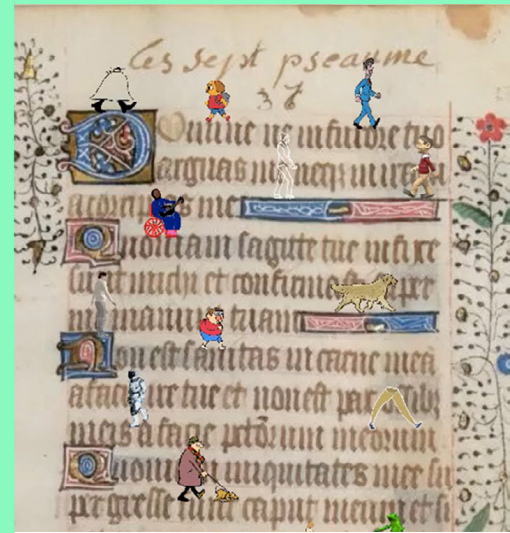 les sept pseaume
37
Domine ne in furore tuo
arguas me neq in ira
me
Quoniam sagitte tue infixe
michi et confirmasti super
manum tuam
Non est sanitas in carne mea
a facie ire tue et non est pax
meis a facie pctōrum meorum
Quoniam iniquitates mee su
pergresse sunt caput meum et si